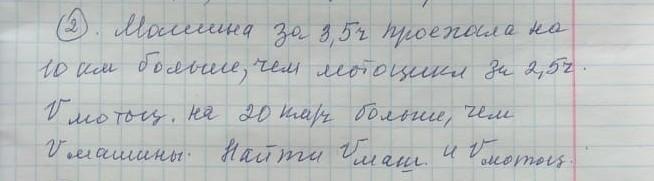 ②. Машина за 3,5ч проехала на
10 км больше, чем мотоцикл за 2,5ч.
Vмотоц. на 20 км/ч больше, чем
Vмашины. Найти Vмаш. и Vмотоц.